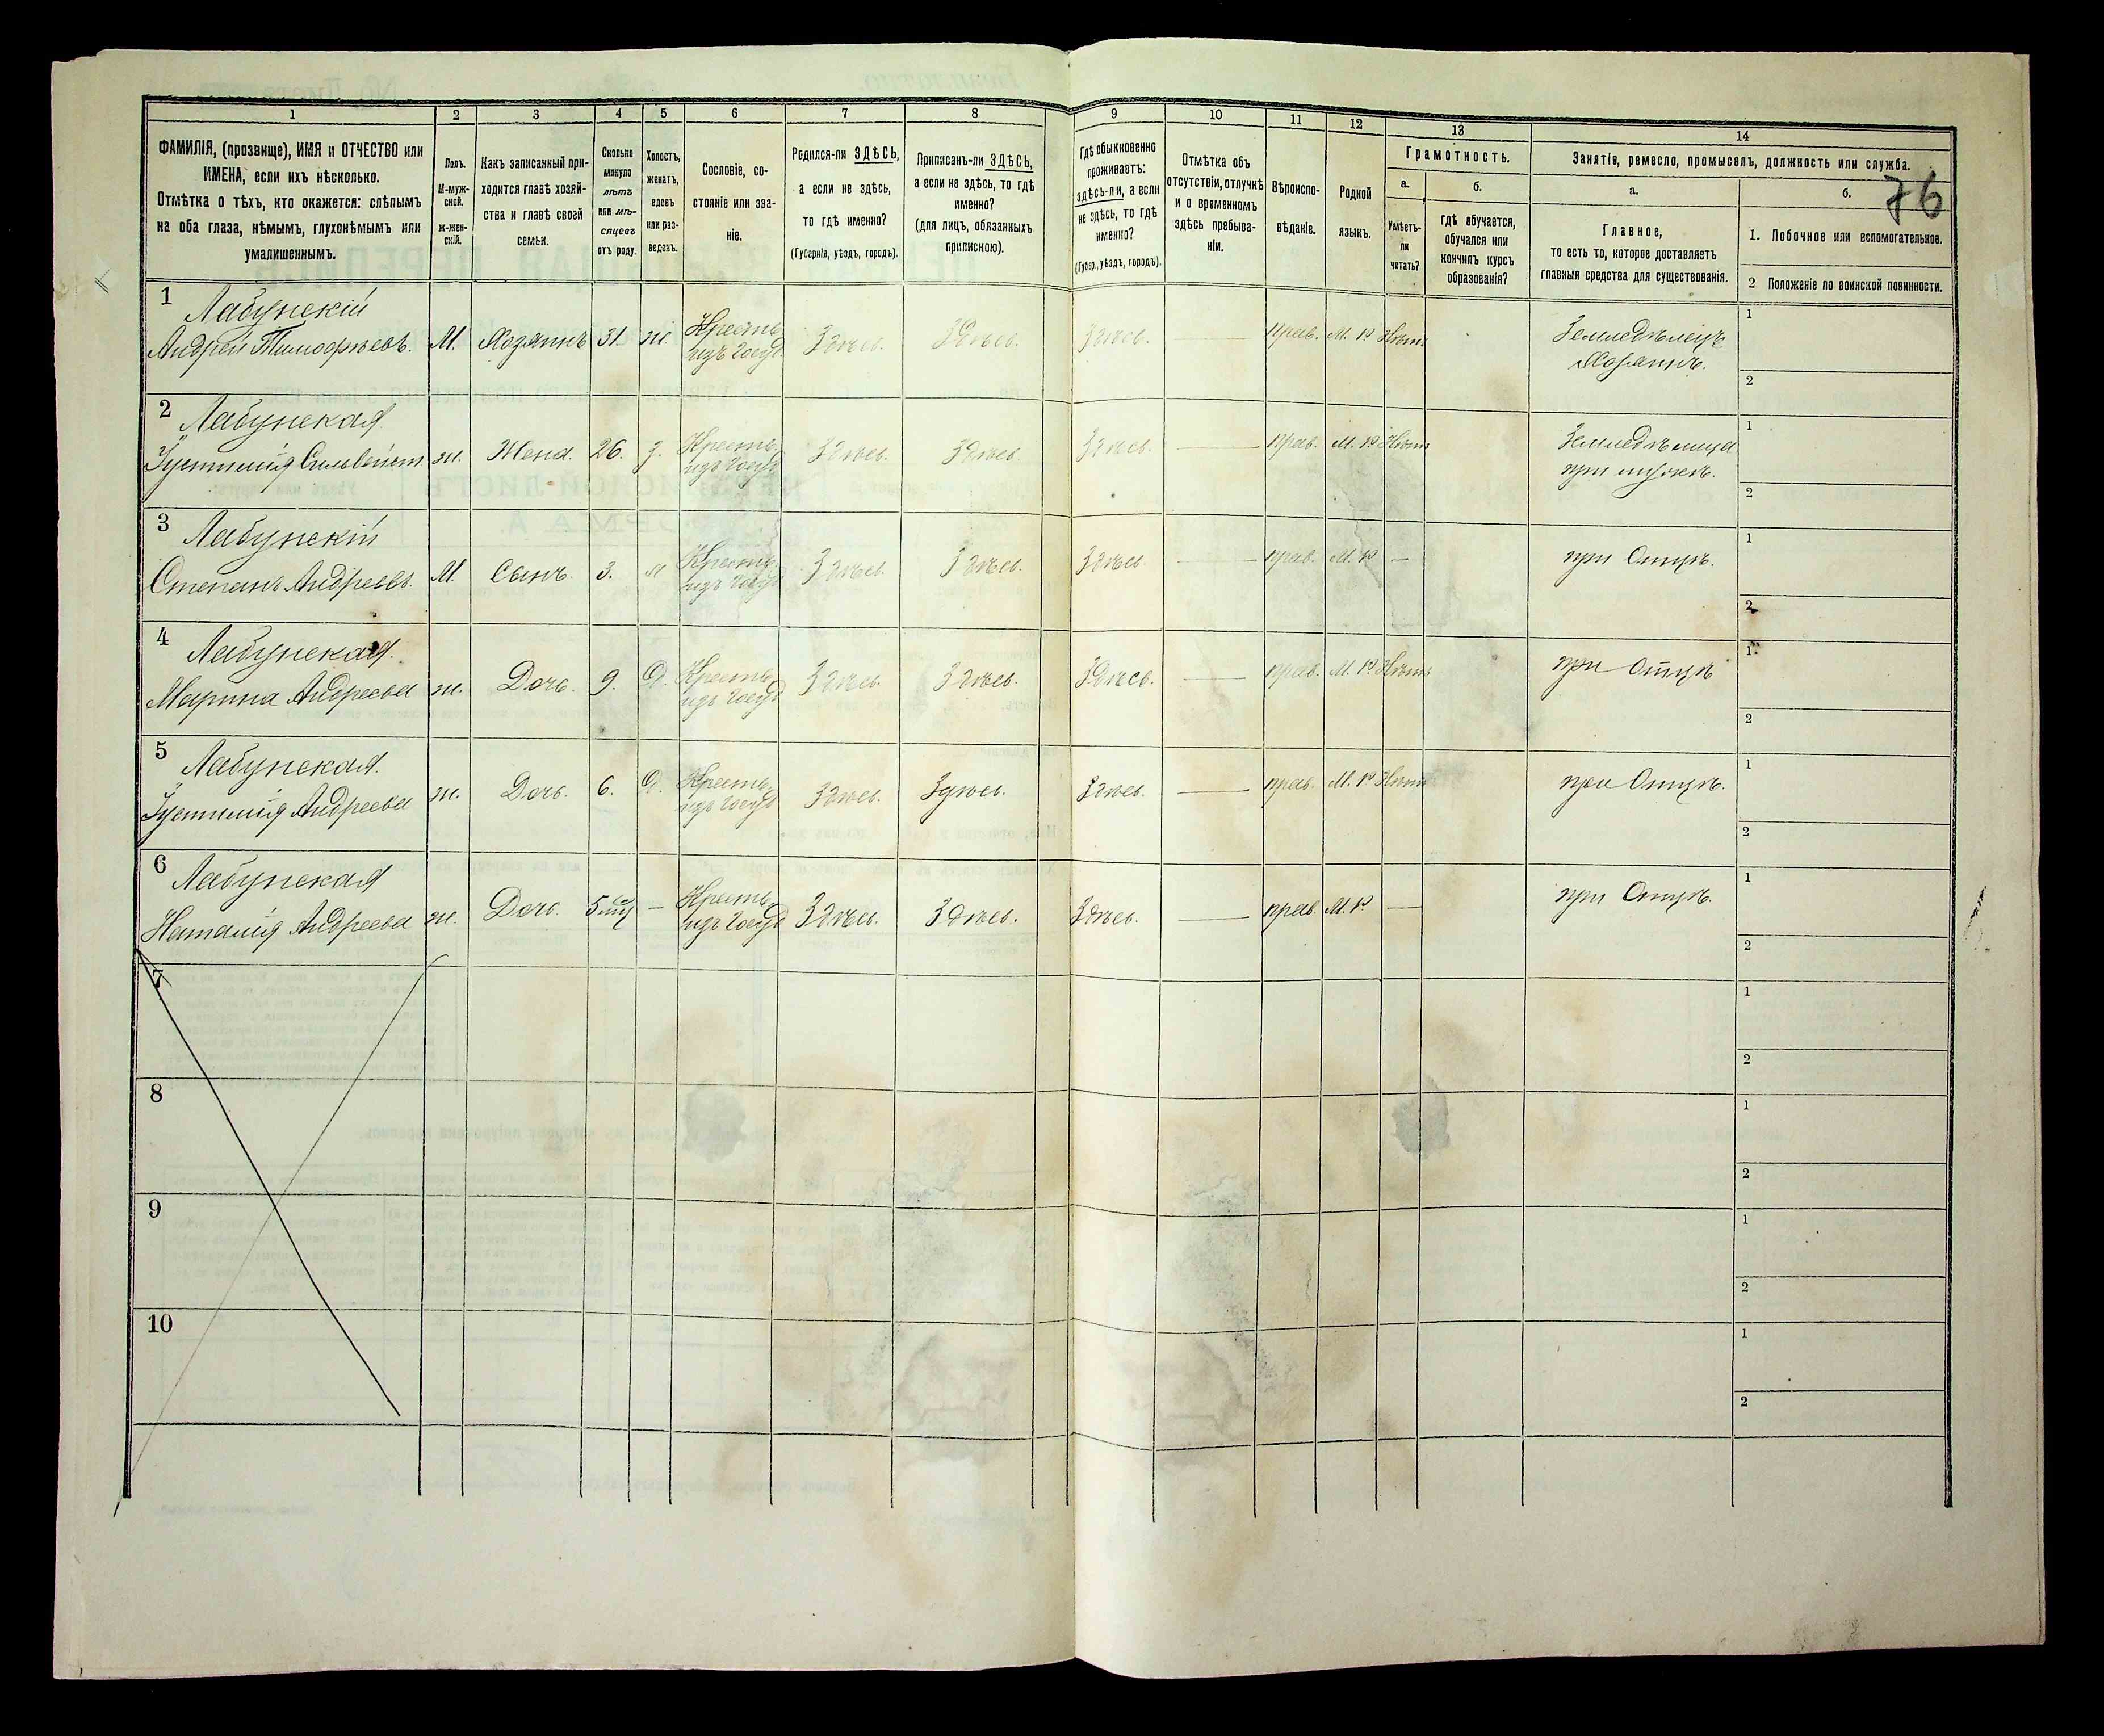 76
1 2 3 4 5 6 7 8 9 10 11 12 13 14
ФАМИЛІЯ, (прозвище), ИМЯ и ОТЧЕСТВО или
ИМЕНА, если ихъ нѣсколько.
Отмѣтка о тѣхъ, кто окажется: слѣпымъ
на оба глаза, нѣмымъ, глухонѣмымъ или
умалишеннымъ.
Полъ.
М-муж-
ской.
Ж-жен-
скій.
Какъ записанный при-
ходится главѣ хозяй-
ства и главѣ своей
семьи.
Сколько
минуло
лѣтъ
или мѣ-
сяцевъ
отъ роду.
Холостъ,
женатъ,
вдовъ
или раз-
веденъ.
Сословіе, со-
стояніе или зва-
ніе.
Родился-ли ЗДѢСЬ,
а если не здѣсь,
то гдѣ именно?
(Губернія, уѣздъ, городъ).
Приписанъ-ли ЗДѢСЬ,
а если не здѣсь, то гдѣ
именно?
(для лицъ, обязанныхъ
припискою).
Гдѣ обыкновенно
проживаетъ:
здѣсь-ли, а если
не здѣсь, то гдѣ
именно?
(Губер., уѣздъ, городъ).
Отмѣтка объ
отсутствіи, отлучкѣ
и о временномъ
здѣсь пребыва-
ніи.
Вѣроиспо-
вѣданіе.
Родной
языкъ.
Грамотность.
а.
Умѣетъ-
ли
читать?
б.
гдѣ обучается,
обучался или
кончилъ курсъ
образованія?
Занятіе, ремесло, промыселъ, должность или служба.
а.
Главное,
то есть то, которое доставляетъ
главныя средства для существованія.
б.
1. Побочное или вспомогательное.
2 Положеніе по воинской повинности.
1 Лабунскій
Андрей Тимофѣевъ. М. Хозяинъ 31. ж. Крестъ. изъ Госуд Здѣсь. Здѣсь. Здѣсь. — прав. М. Р. Нѣтъ Земледѣлецъ
Хозяинъ.
1
2
2 Лабунская
Густинія ж. Жена. 26. з. Крестъ. изъ Госуд Здѣсь. Здѣсь. Здѣсь. — прав. М. Р. Нѣтъ
при мужѣ.
1
2
3 Лабунскій
Степанъ Андреевъ. М. Сынъ. 3. Крестъ. изъ Госуд Здѣсь. Здѣсь. Здѣсь. — прав. М. Р. — при Отцѣ.
1
2
4 Лабунская.
Марина Андреева ж. Дочь. 9. Д. Крестъ. изъ Госуд Здѣсь. Здѣсь. Здѣсь. — прав. М. Р. Нѣтъ при Отцѣ
1
2
5 Лабунская.
Густинія Андреева ж. Дочь. 6. Д. Крестъ. изъ Госуд Здѣсь. Здѣсь. Здѣсь. — прав. М. Р. Нѣтъ при Отцѣ.
1
2
6 Лабунская
Наталія Андреева ж. Дочь. 5 мц — Крестъ. изъ Госуд Здѣсь. Здѣсь. Здѣсь. — прав. М. Р. — при Отцѣ.
1
2
7
1
2
8
1
2
9
1
2
10
1
2